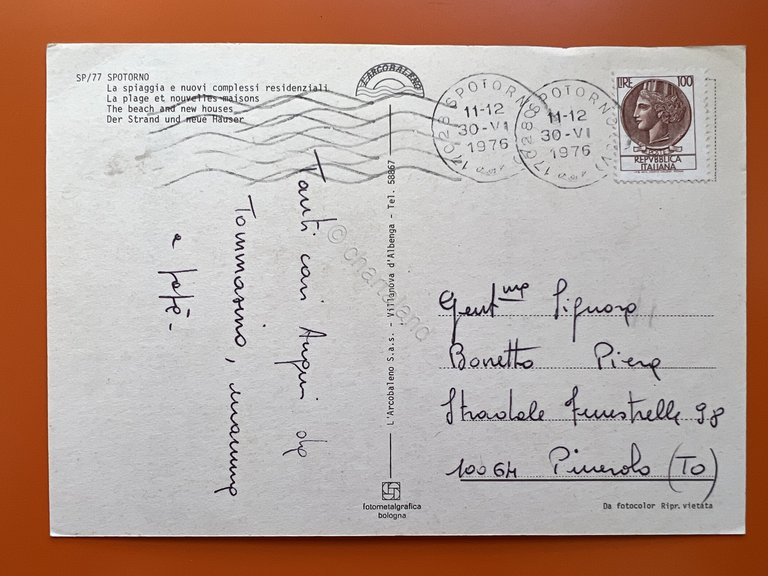 SP/77 SPOTORNO
La spiaggia e nuovi complessi residenziali
La plage et nouvelles maisons
The beach and new houses
Der Strand und neue Häuser
L'ARCOBALENO
17028 SPOTORNO
11-12
30-VI
1976
17028 SPOTORNO
11-12
30-VI
1976
LIRE 100
REPVBBLICA
ITALIANA
Tanti cari Auguri da
Tommasino, mamma
e papà-
L'Arcobaleno S.a.s. - Villanova d'Albenga - Tel. 58867
Gent.ma Signora
Bonetto Piera
Stradale Fenestrelle 98
10064 Pinerolo (TO)
fotometalgrafica
bologna
Da fotocolor Ripr. vietata